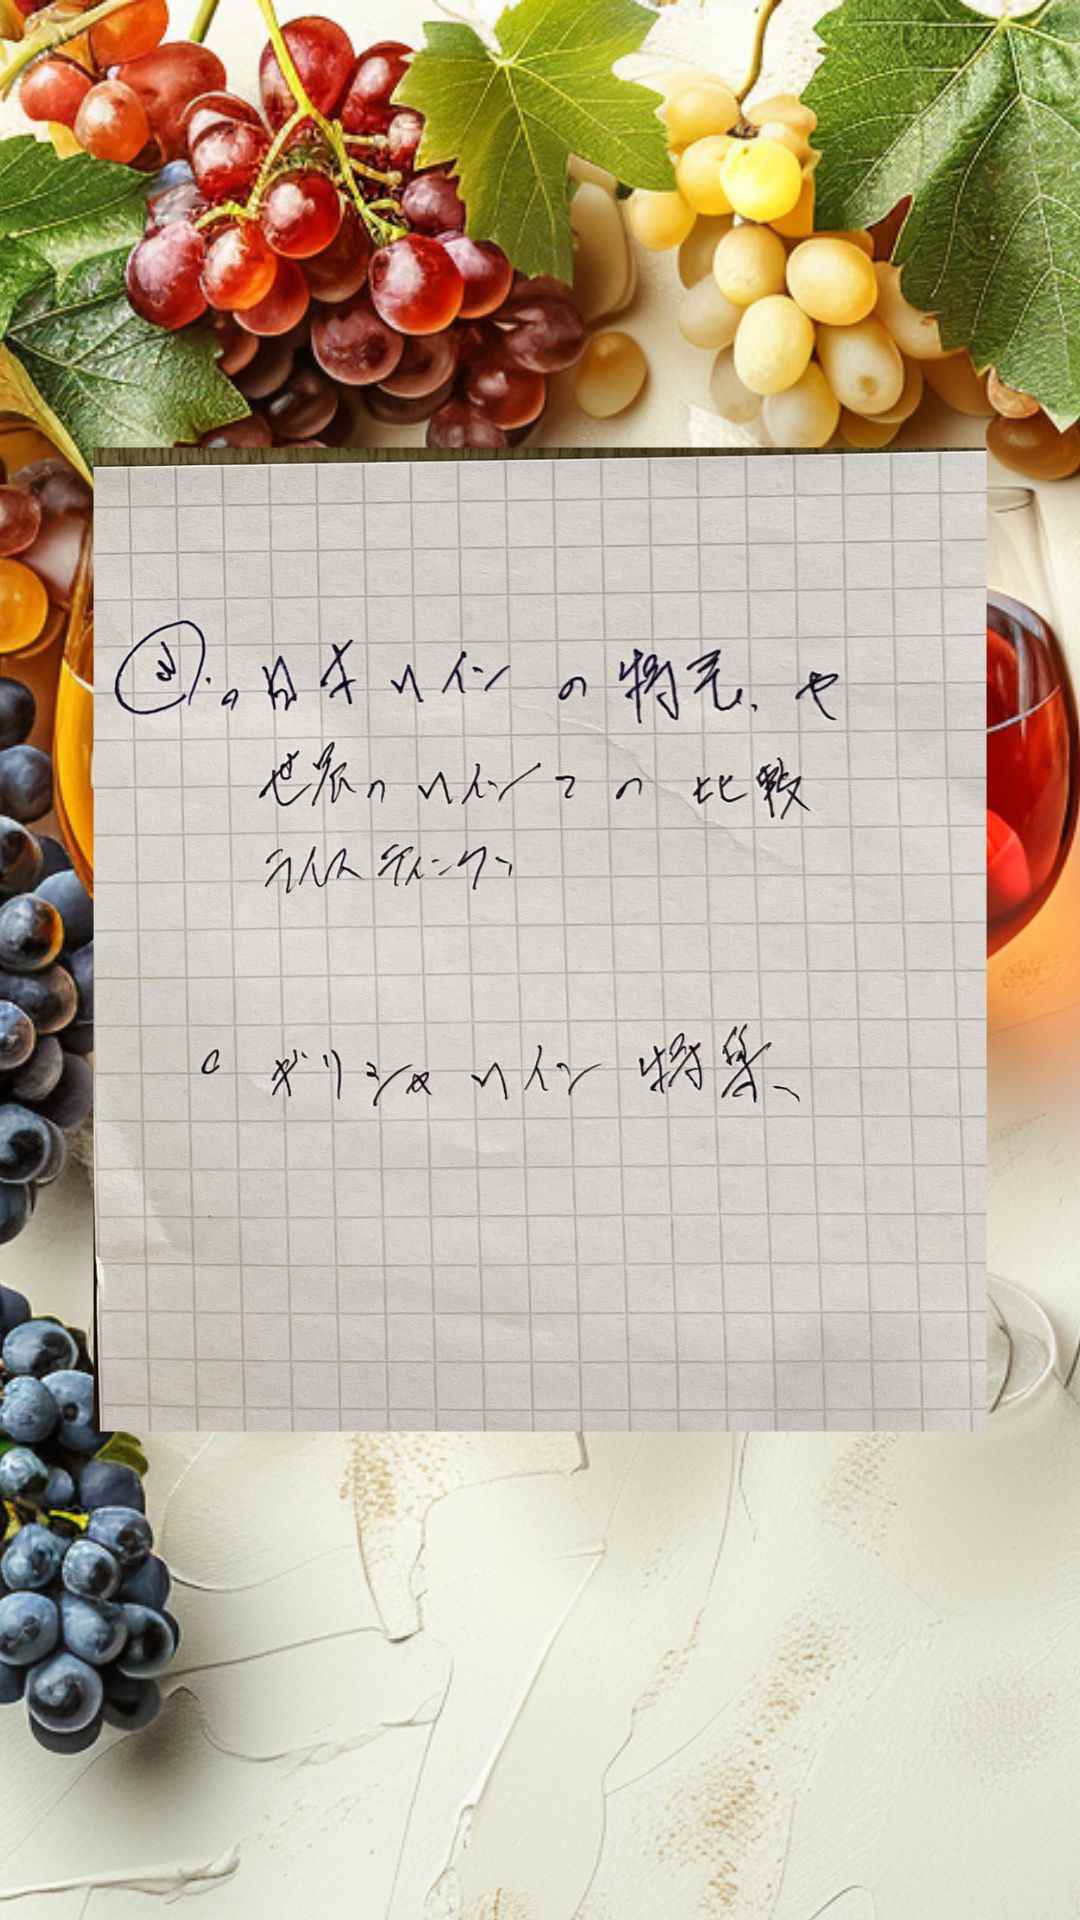 ・日本ワインの特売、や
世界のワインとの比較
テイスティング、
・ギリシャワイン特集、